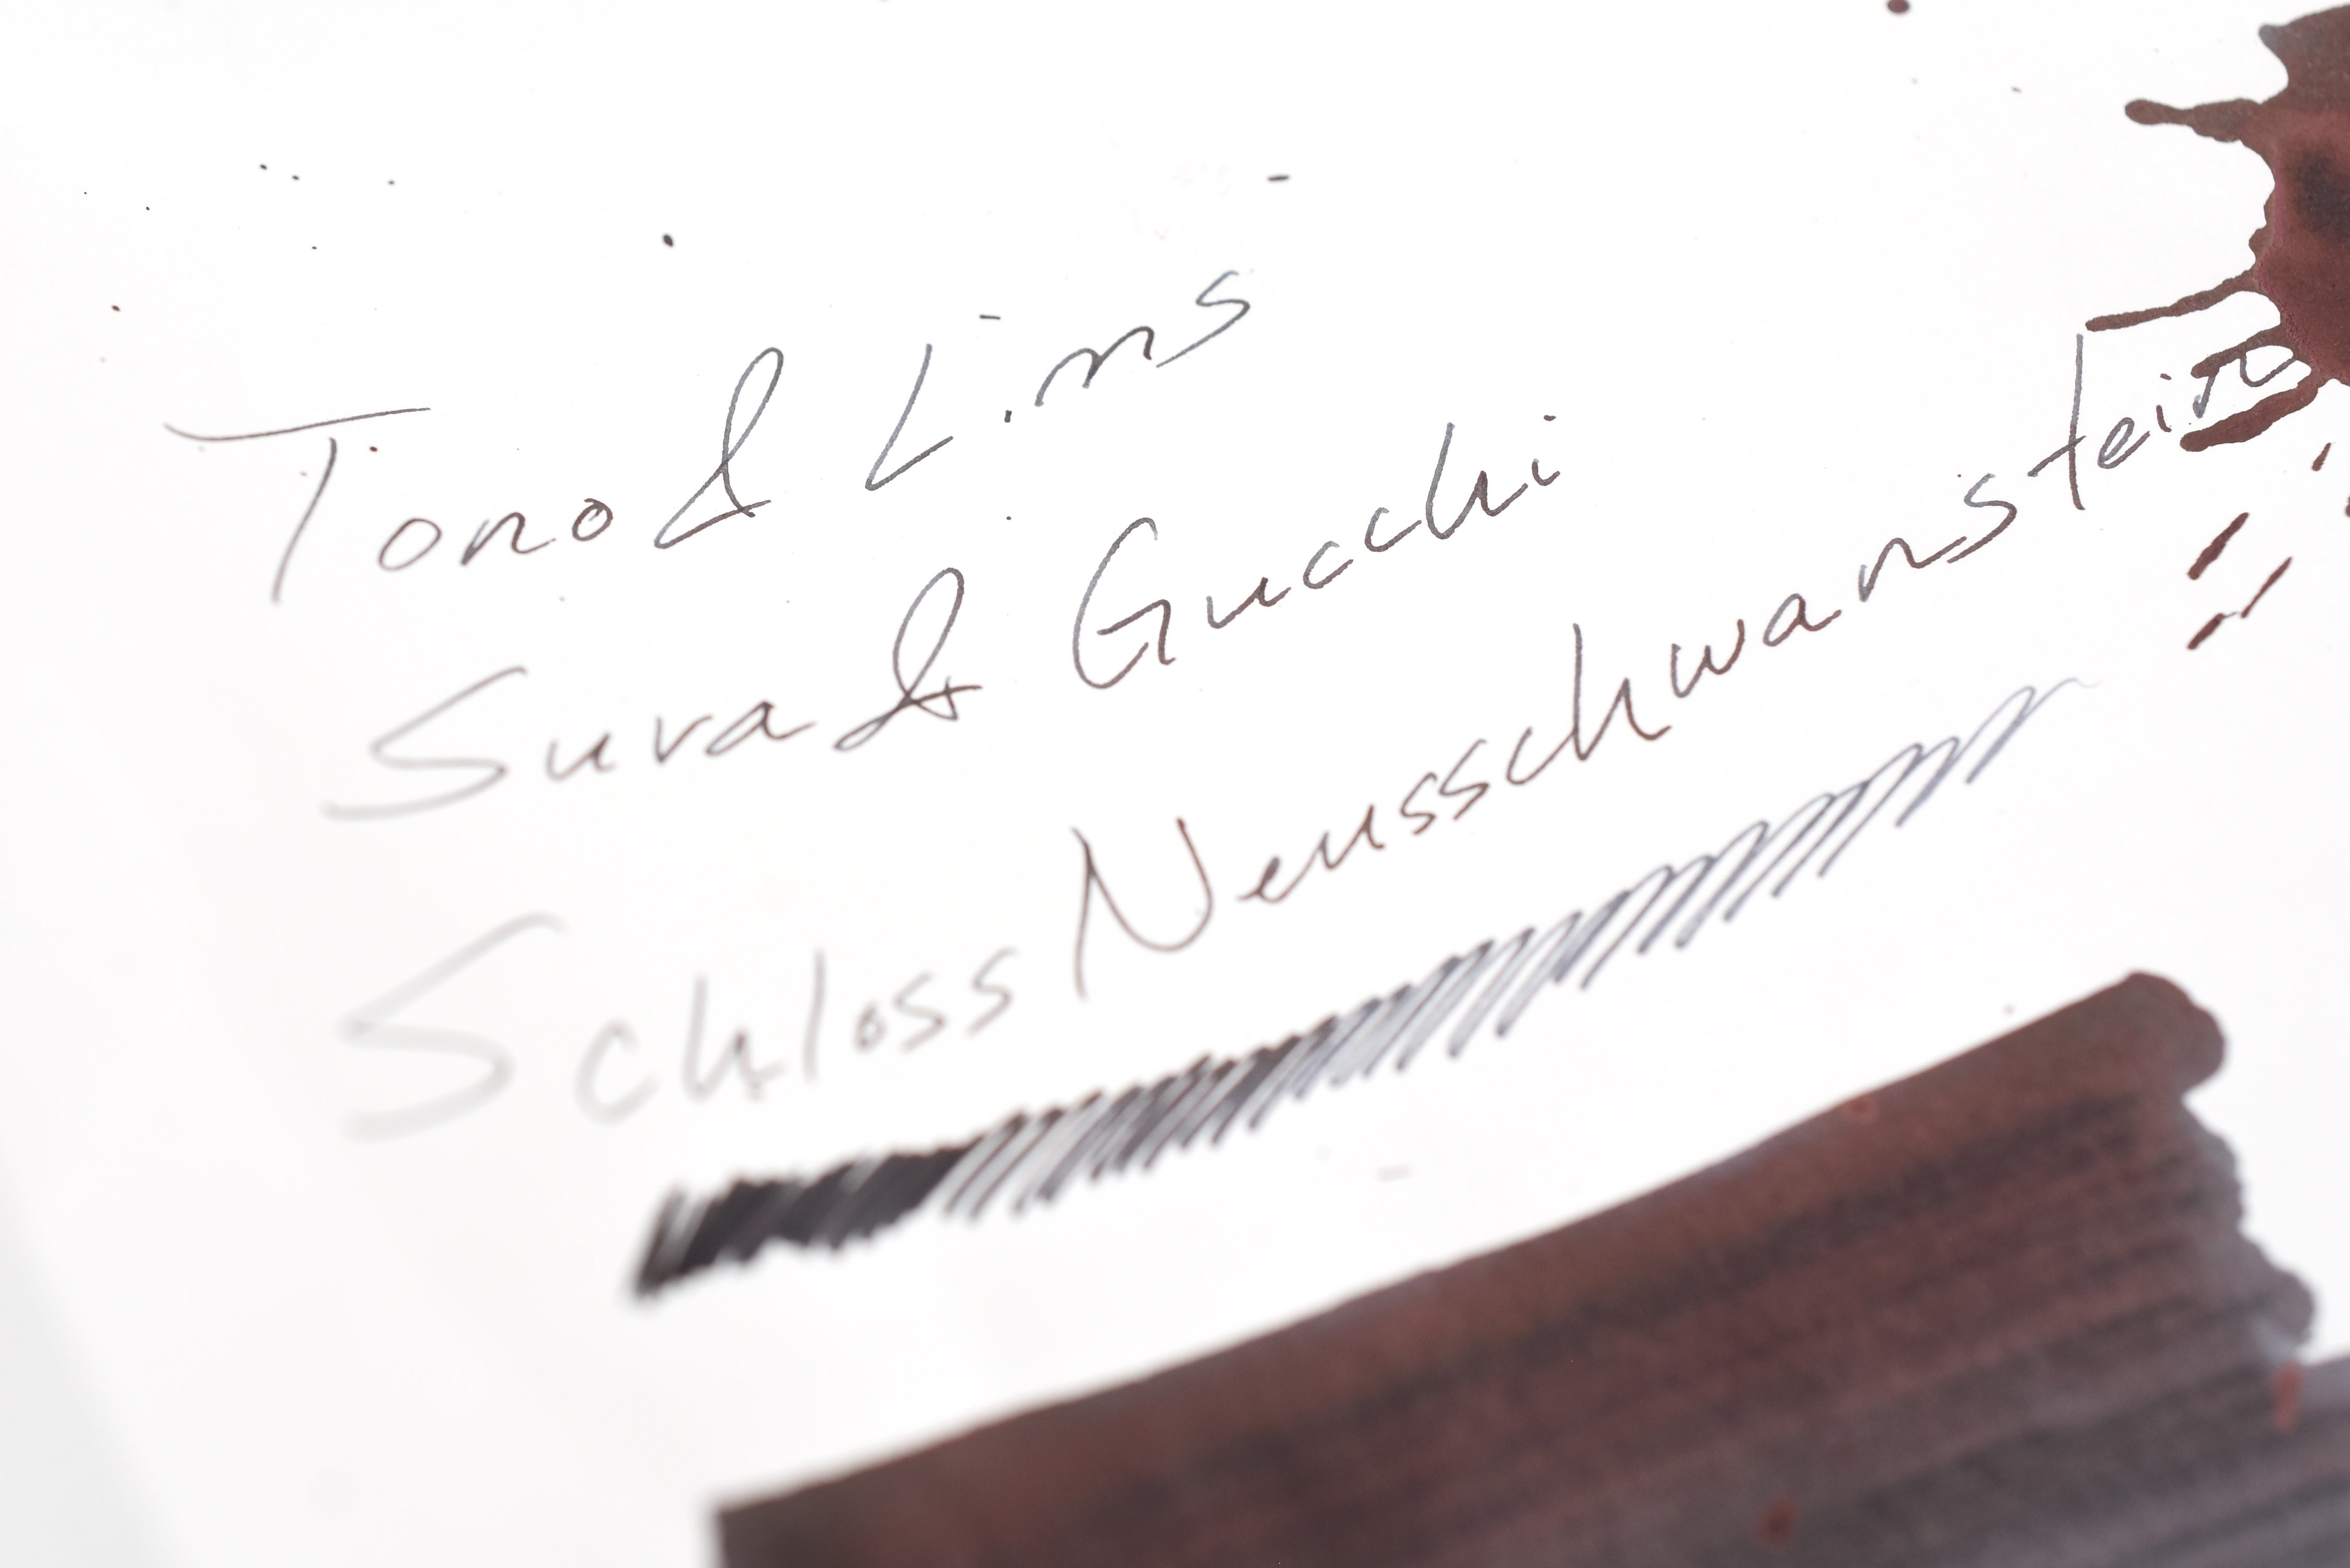 Tono & Lims
Sura & Gucchi
Schloss Neusschwanstein